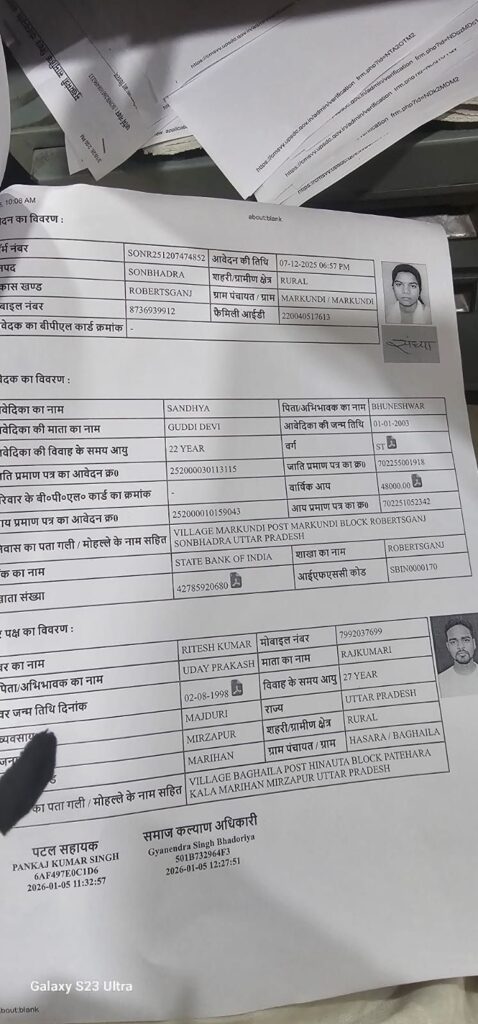 https://cmsvy.upsdc.gov.in/admin/verification
frm.php?id=NTA2OTM2
https://cmsvy.upsdc.gov.in/admin/verification
frm.php?id=NDk2MDM2
10:06 AM
about:blank
दन का विवरण :
र्म नंबर SONR251207474852 आवेदन की तिथि 07-12-2025 06:57 PM
नपद SONBHADRA शहरी/ग्रामीण क्षेत्र RURAL
कास खण्ड ROBERTSGANJ ग्राम पंचायत / ग्राम MARKUNDI / MARKUNDI
बाइल नंबर 8736939912 फैमिली आईडी 220040517613
वेदक का बीपीएल कार्ड क्रमांक -
संध्या
वेदक का विवरण :
वेदिका का नाम SANDHYA पिता/अभिभावक का नाम BHUNESHWAR
वेदिका की माता का नाम GUDDI DEVI आवेदिका की जन्म तिथि 01-01-2003
वेदिका की विवाह के समय आयु 22 YEAR वर्ग ST
ाति प्रमाण पत्र का आवेदन क्र0 252000030113115 जाति प्रमाण पत्र का क्र0 702255001918
रिवार के बी०पी०एल० कार्ड का क्रमांक - वार्षिक आय 48000.00
आय प्रमाण पत्र का आवेदन क्र0 252000010159043 आय प्रमाण पत्र का क्र0 702251052342
निवास का पता गली / मोहल्ले के नाम सहित VILLAGE MARKUNDI POST MARKUNDI BLOCK ROBERTSGANJ
SONBHADRA UTTAR PRADESH
क का नाम STATE BANK OF INDIA शाखा का नाम ROBERTSGANJ
खाता संख्या 42785920680 आईएफएससी कोड SBIN0000170
र पक्ष का विवरण :
वर का नाम RITESH KUMAR मोबाइल नंबर 7992037699
पिता/अभिभावक का नाम UDAY PRAKASH माता का नाम RAJKUMARI
वर जन्म तिथि दिनांक 02-08-1998 विवाह के समय आयु 27 YEAR
व्यवसाय MAJDURI राज्य UTTAR PRADESH
जन MIRZAPUR शहरी/ग्रामीण क्षेत्र RURAL
MARIHAN ग्राम पंचायत / ग्राम HASARA / BAGHAILA
का पता गली / मोहल्ले के नाम सहित VILLAGE BAGHAILA POST HINAUTA BLOCK PATEHARA
KALA MARIHAN MIRZAPUR UTTAR PRADESH
पटल सहायक
PANKAJ KUMAR SINGH
6AF497E0C1D6
2026-01-05 11:32:57
समाज कल्याण अधिकारी
Gyanendra Singh Bhadoriya
501B732964F3
2026-01-05 12:27:51
Galaxy S23 Ultra
about:blank